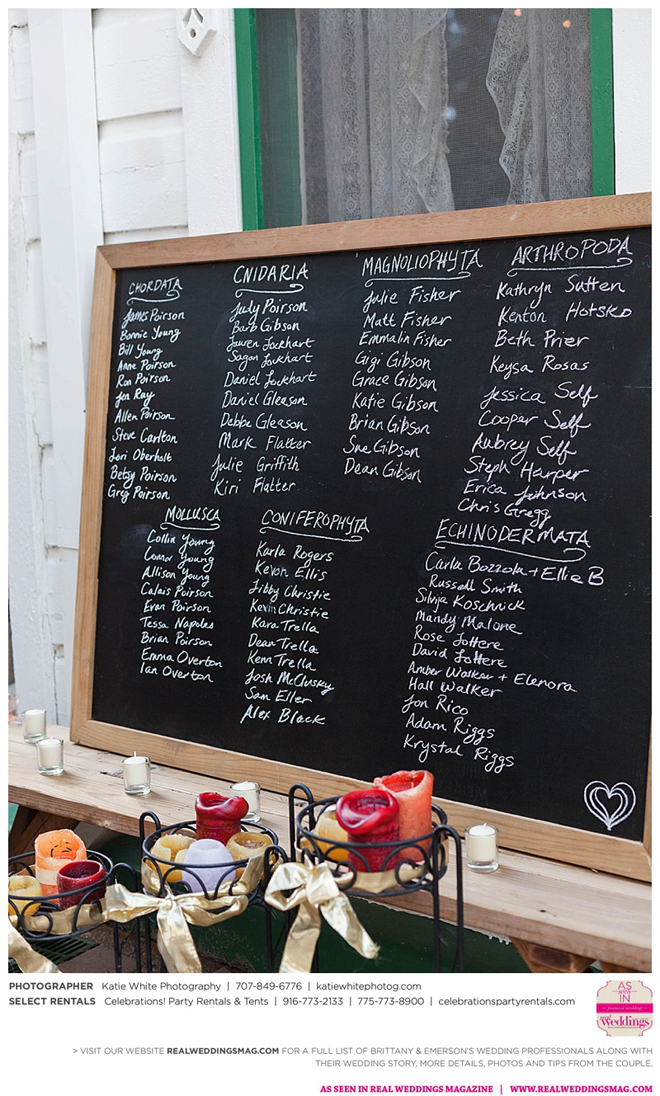 CHORDATA
James Poirson
Bonnie Young
Bill Young
Anne Poirson
Ron Poirson
Jen Ray
Allen Poirson
Steve Carlton
Lori Oberholt
Betsy Poirson
Greg Poirson
CNIDARIA
Judy Poirson
Barb Gibson
Lauren Lockhart
Sagan Lockhart
Daniel Lockhart
Daniel Gleason
Debbe Gleason
Mark Flatter
Julie Griffith
Kiri Flatter
MAGNOLIOPHYTA
Julie Fisher
Matt Fisher
Emmalin Fisher
Gigi Gibson
Grace Gibson
Katie Gibson
Brian Gibson
Sue Gibson
Dean Gibson
ARTHROPODA
Kathryn Sutten
Kenton Hotsko
Beth Prier
Keysa Rosas
Jessica Self
Cooper Self
Aubrey Self
Steph Harper
Erica Johnson
Chris Gregg
MOLLUSCA
Collin Young
Connor Young
Allison Young
Calais Poirson
Evan Poirson
Tessa Napoles
Brian Poirson
Emma Overton
Ian Overton
CONIFEROPHYTA
Karla Rogers
Kevan Ellis
Libby Christie
Kevin Christie
Kara Trella
Dean Trella
Kenn Trella
Josh McClusky
Sam Eller
Alex Black
ECHINODERMATA
Carla Bozzola + Ellie B
Russell Smith
Silvija Koschnick
Mandy Malone
Rose Lottere
David Lottere
Amber Walker + Elenora
Hall Walker
Jon Rico
Adam Riggs
Krystal Riggs
PHOTOGRAPHER Katie White Photography | 707-849-6776 | katiewhitephotog.com
SELECT RENTALS Celebrations! Party Rentals & Tents | 916-773-2133 | 775-773-8900 | celebrationspartyrentals.com
AS
SEEN
IN
real
Weddings
> VISIT OUR WEBSITE REALWEDDINGSMAG.COM FOR A FULL LIST OF BRITTANY & EMERSON'S WEDDING PROFESSIONALS ALONG WITH
THEIR WEDDING STORY, MORE DETAILS, PHOTOS AND TIPS FROM THE COUPLE.
AS SEEN IN REAL WEDDINGS MAGAZINE | WWW.REALWEDDINGSMAG.COM